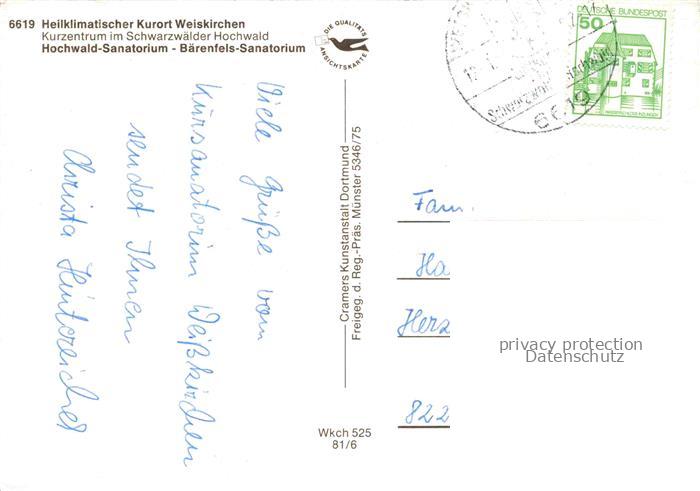 6619 Heilklimatischer Kurort Weiskirchen
Kurzentrum im Schwarzwälder Hochwald
Hochwald-Sanatorium - Bärenfels-Sanatorium
DIE QUALITÄTS
ANSICHTSKARTE
50
DEUTSCHE BUNDESPOST
WASSERSCHLOSS INZLINGEN
6619
Viele Grüße vom
Kursanatorium Weißkirchen
sendet Ihnen
Christa
Cramers Kunstanstalt Dortmund
Freigeg. d. Reg.-Präs. Münster 5346/75
Fam.
Ha
Herz
822
privacy protection
Datenschutz
Wkch 525
81/6